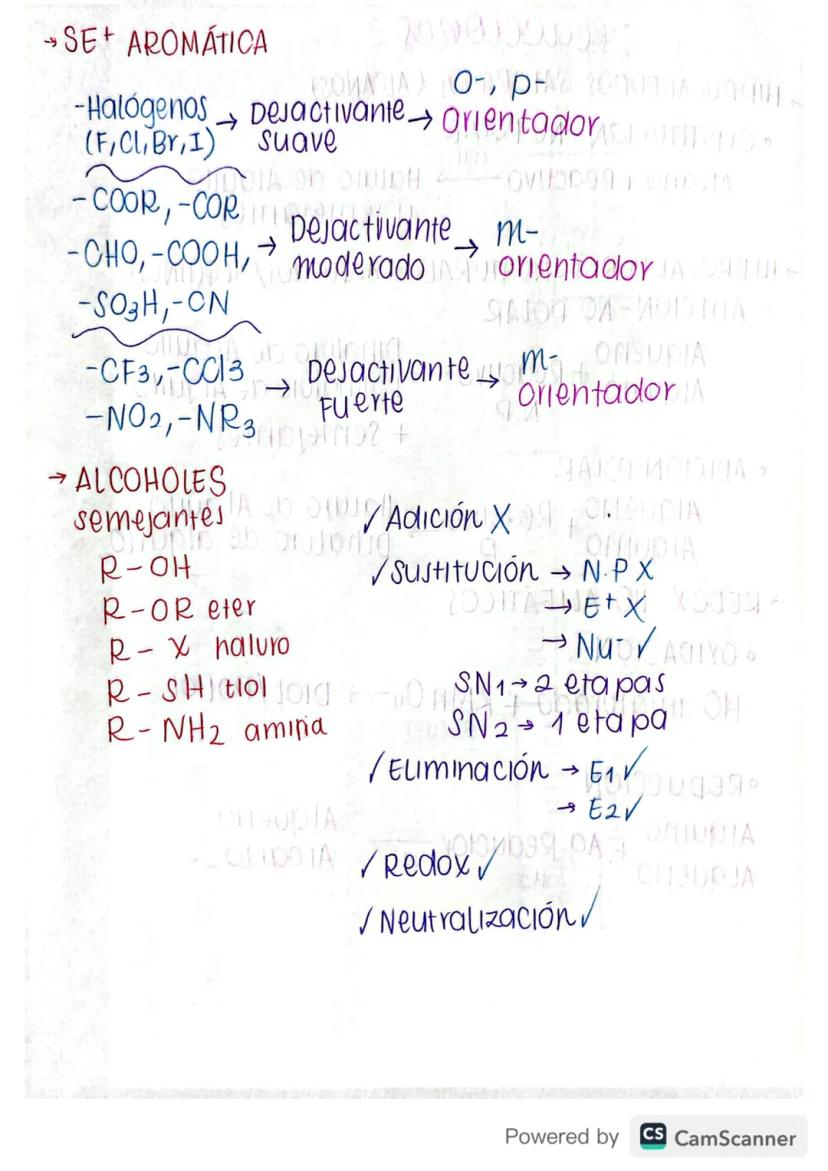 → SE+ AROMÁTICA
-Halógenos → Desactivante → o-, p-
(F,Cl,Br,I) suave Orientador
-COOR, -COR
-CHO, -COOH, → Desactivante → m-
moderado orientador
-SO3H, -CN
-CF3, -CCl3 → Desactivante → m-
-NO2, -NR3 Fuerte Orientador
→ ALCOHOLES
semejantes
R-OH
R-OR eter
R-X haluro
R-SH tiol
R-NH2 amina
/ Adición X
/ Sustitución → N.P X
→ E+ X
→ Nu- ✓
SN1 → 2 etapas
SN2 → 1 etapa
/ Eliminación → E1 ✓
→ E2 ✓
/ Redox ✓
/ Neutralización ✓
Powered by CS CamScanner